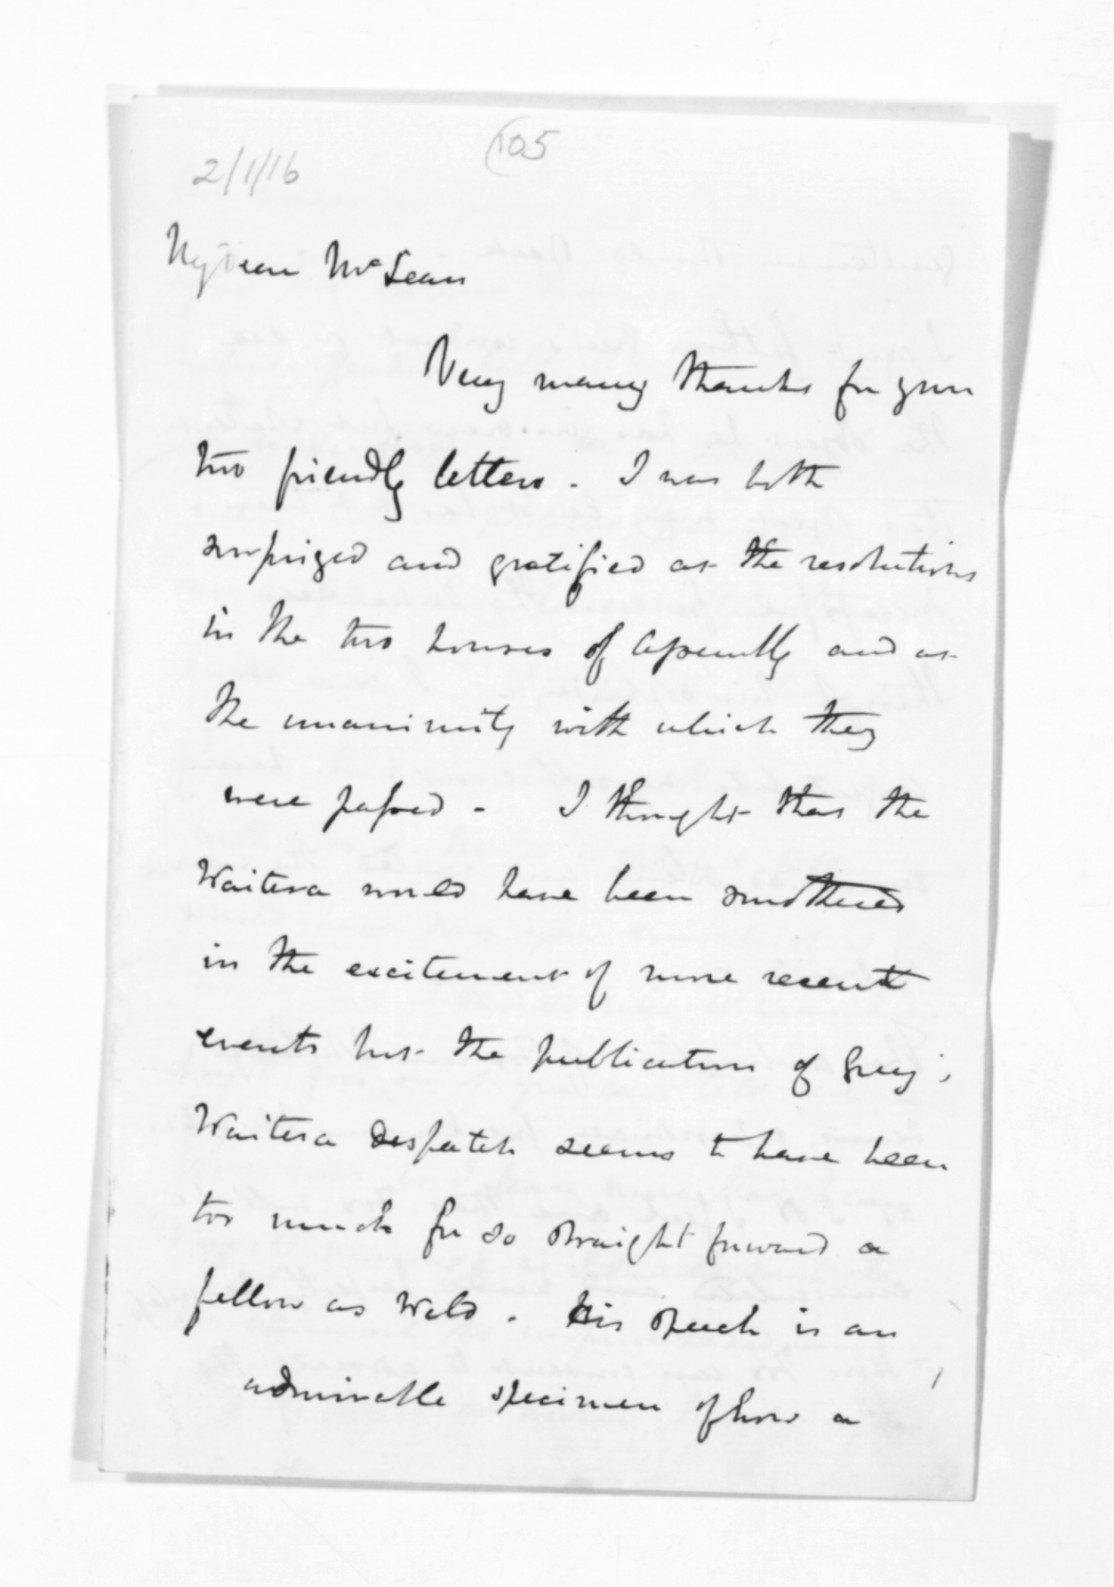 105
2/1/16
My Dear McLean
Very many thanks for your
two friendly letters. I was both
surprized and gratified at the resolutions
in the two houses of Assembly and at
the unanimity with which they
were passed - I thought that the
Waitera would have been smothered
in the excitement of more recent
events but the publication of Grey's
Waitera despatch seems to have been
too much for so straight forward a
fellow as Weld. His speech is an
admirable specimen of how a